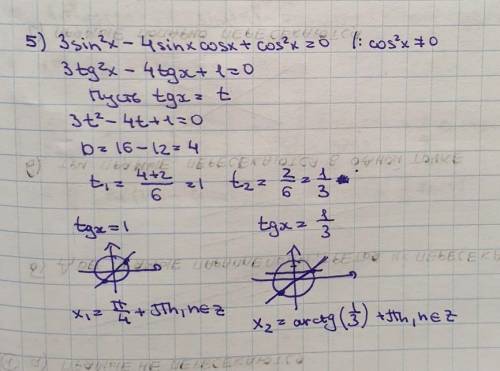 5) 3sin²x - 4sinxcosx + cos²x = 0 |: cos²x ≠ 0
3tg²x - 4tgx + 1 = 0
Пусть tgx = t
3t² - 4t + 1 = 0
D = 16 - 12 = 4
t₁ = (4+2)/6 = 1 t₂ = 2/6 = 1/3
tgx = 1 tgx = 1/3
x₁ = π/4 + πn, n∈Z x₂ = arctg(1/3) + πn, n∈Z